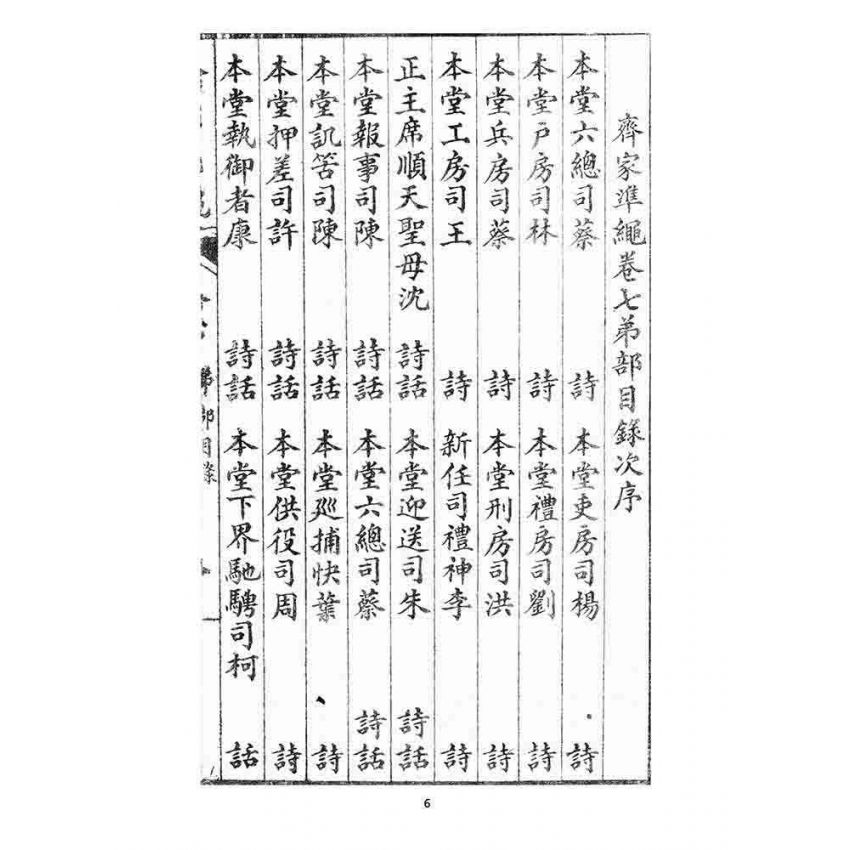 齊家準繩卷七弟部目錄次序
本堂六總司蔡 詩 本堂吏房司楊 詩
本堂戸房司林 詩 本堂禮房司劉 詩
本堂兵房司蔡 詩 本堂刑房司洪 詩
本堂工房司王 詩 新任司禮神李 詩
正主席順天聖母沈 詩話 本堂迎送司朱 詩話
本堂報事司陳 詩話 本堂六總司蔡 詩話
本堂訊笞司陳 詩話 本堂廵捕快葉 詩
本堂押差司許 詩話 本堂供役司周 詩
本堂執御者康 詩話 本堂下界馳騁司柯 話
弟部目錄
6